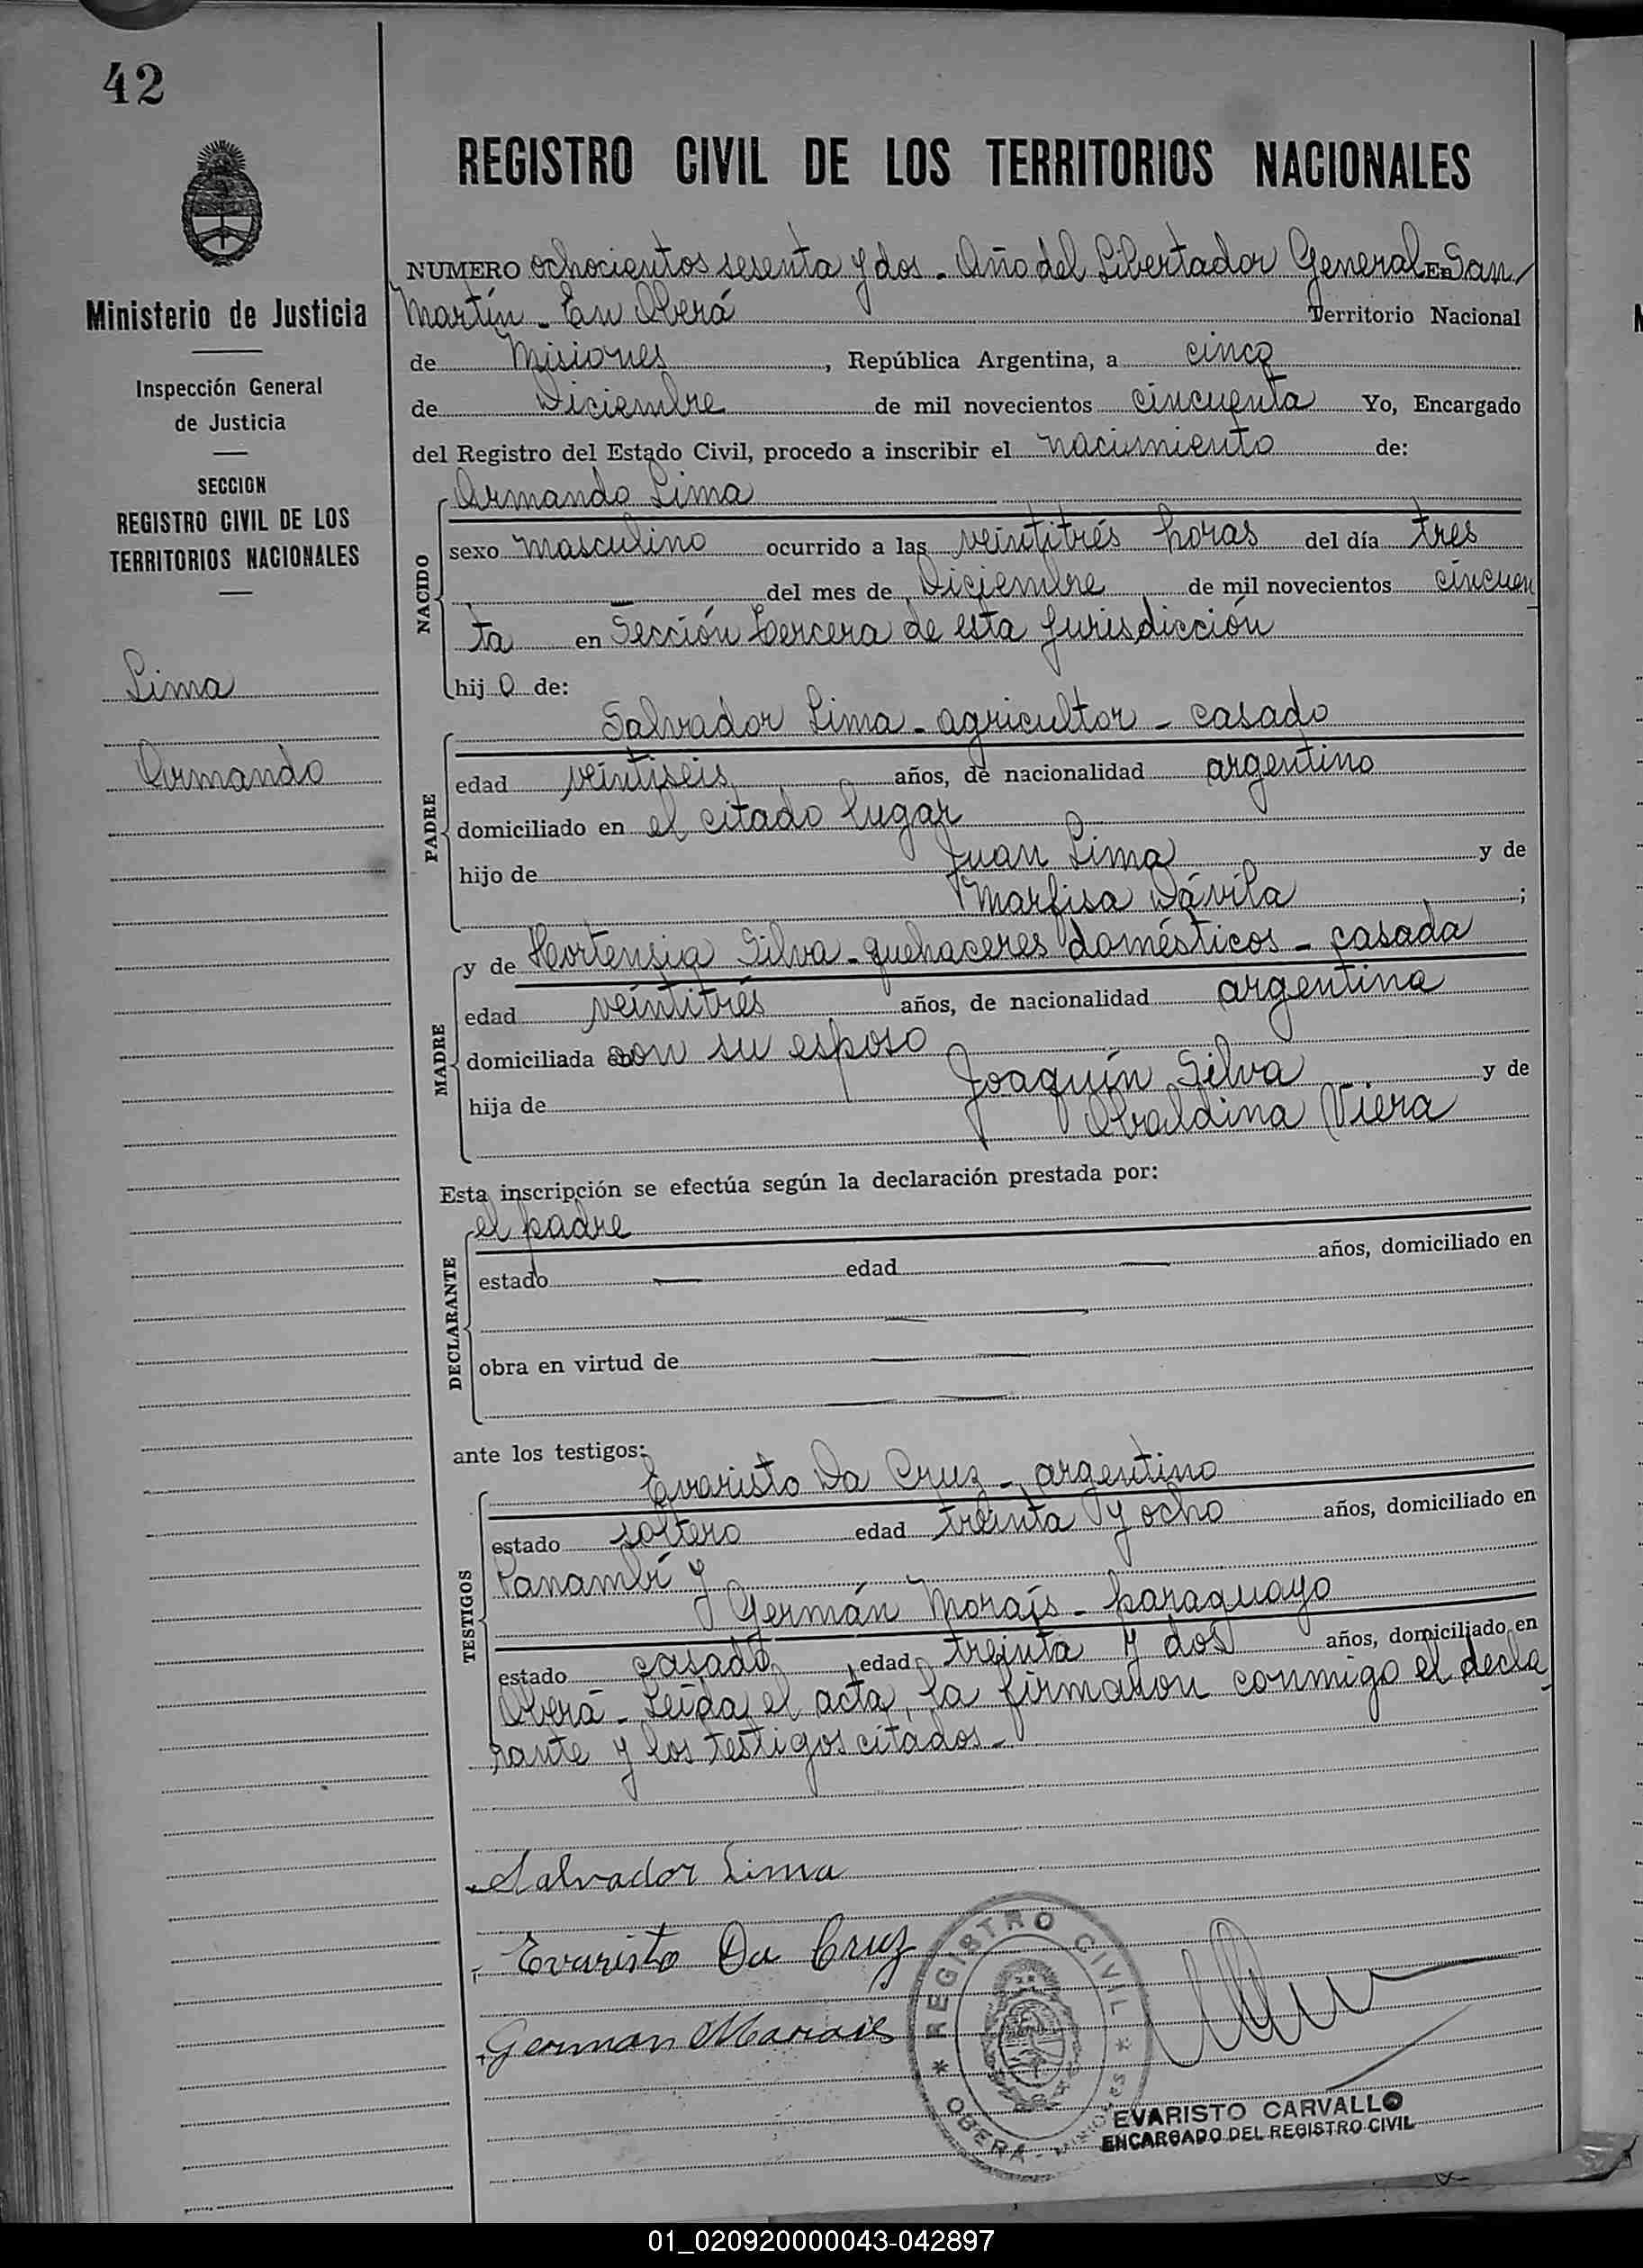 42
REGISTRO CIVIL DE LOS TERRITORIOS NACIONALES
Ministerio de Justicia
Inspección General
de Justicia
SECCION
REGISTRO CIVIL DE LOS
TERRITORIOS NACIONALES
Lima
Armando
NUMERO ochocientos sesenta y dos - Año del Libertador General EN San
Martín - En Oberá Territorio Nacional
de Misiones, República Argentina, a cinco
de Diciembre de mil novecientos cincuenta Yo, Encargado
del Registro del Estado Civil, procedo a inscribir el nacimiento de:
NACIDO
Armando Lima
sexo masculino ocurrido a las veintitrés horas del día tres
del mes de Diciembre de mil novecientos cincuen
ta en Sección tercera de esta jurisdicción
hijo de:
PADRE
Salvador Lima - agricultor - casado
edad veintiseis años, de nacionalidad argentino
domiciliado en el citado lugar
hijo de Juan Lima y de
Marfisa Dávila ;
MADRE
y de Hortensia Silva - quehaceres domésticos - casada
edad veintitrés años, de nacionalidad argentina
domiciliada con su esposo
hija de Joaquín Silva y de
Obaldina Viera
Esta inscripción se efectúa según la declaración prestada por:
DECLARANTE
el padre
estado — edad — años, domiciliado en
obra en virtud de —
ante los testigos:
TESTIGOS
Evaristo Da Cruz - argentino
estado soltero edad treinta y ocho años, domiciliado en
Panambí y
Germán Morais - paraguayo
estado casado, edad treinta y dos años, domiciliado en
Oberá - Leída el acta, la firmaron conmigo el decla
rante y los testigos citados -
Salvador Lima
Evaristo Da Cruz
German Morais
REGISTRO CIVIL
* OBERÁ - MISIONES *
EVARISTO CARVALLO
ENCARGADO DEL REGISTRO CIVIL
01_020920000043-042897